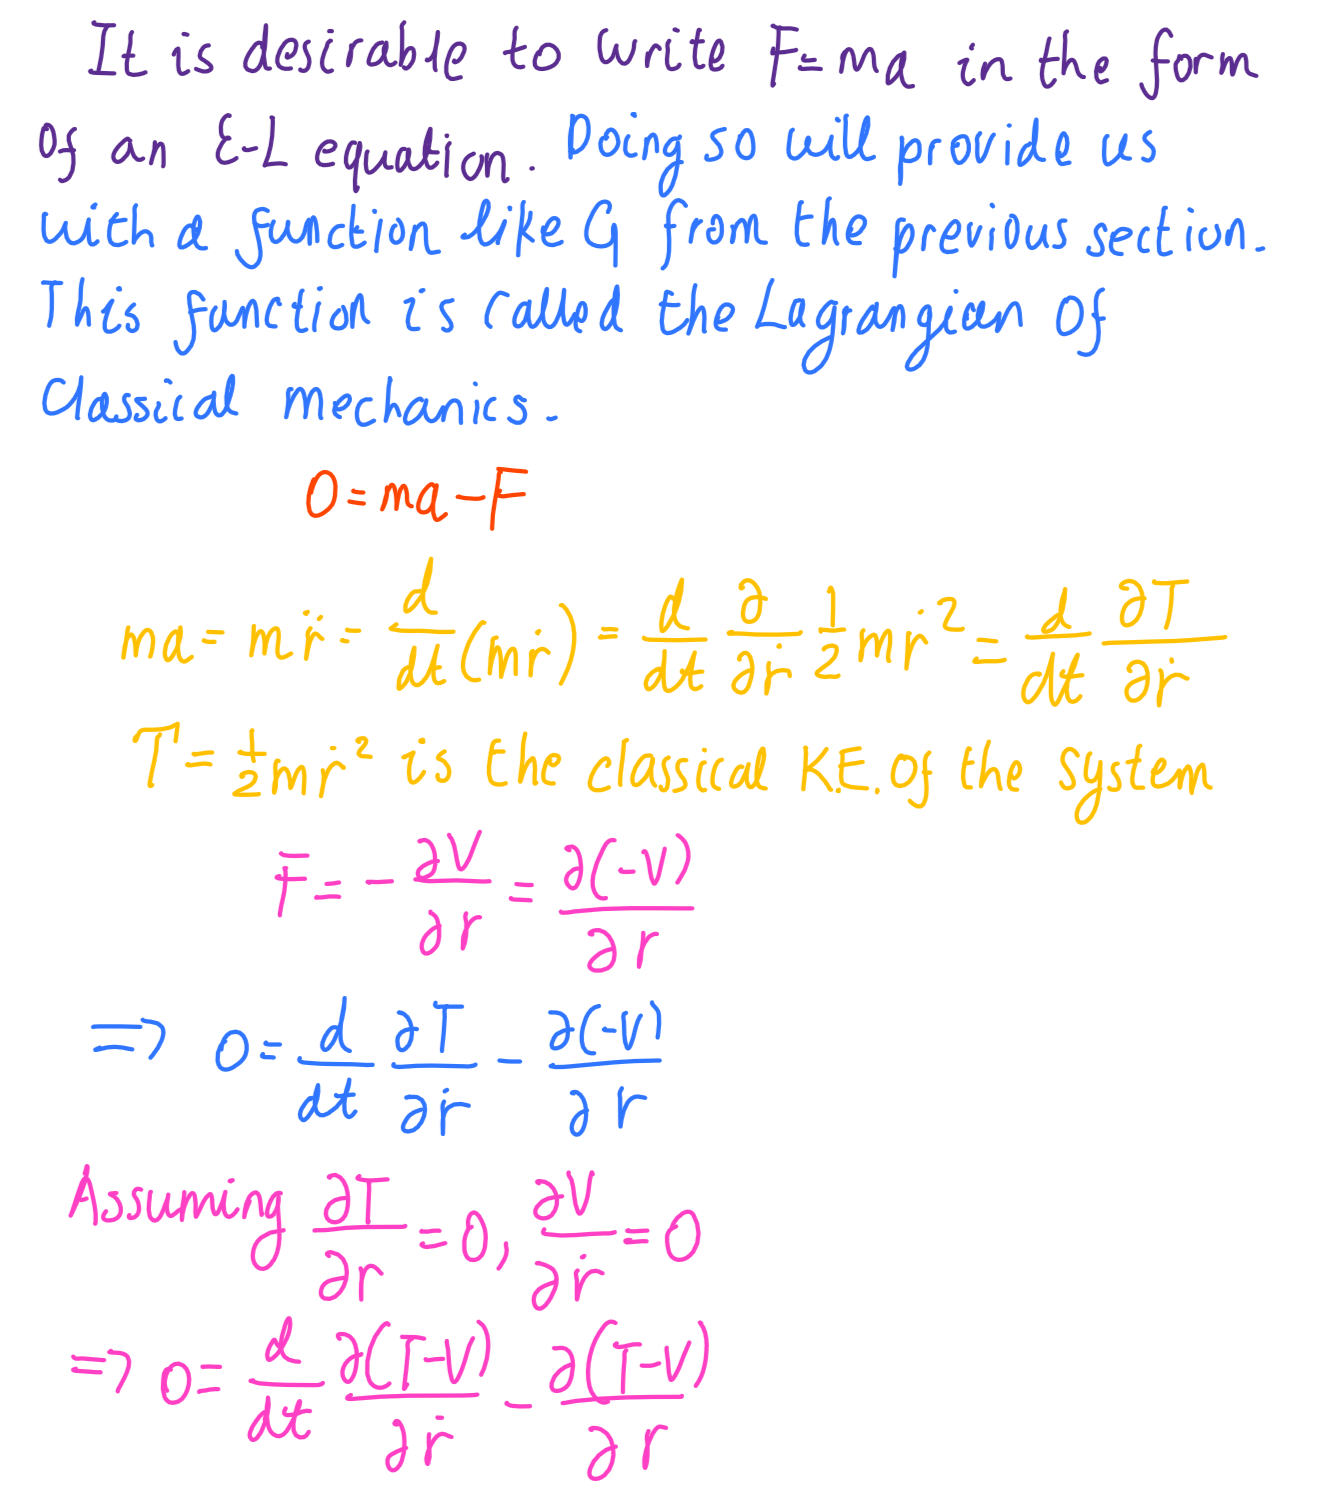 It is desirable to write F=ma in the form
of an E-L equation. Doing so will provide us
with a function like G from the previous section.
This function is called the Lagrangian of
Classical mechanics.
0=ma-F
ma = mr̈ = d/dt (mṙ) = d/dt ∂/∂ṙ 1/2 mṙ² = d/dt ∂T/∂ṙ
T = 1/2 mṙ² is the classical K.E. of the system
F = - ∂V/∂r = ∂(-V)/∂r
⇒ 0 = d/dt ∂T/∂ṙ - ∂(-V)/∂r
Assuming ∂T/∂r = 0, ∂V/∂ṙ = 0
⇒ 0 = d/dt ∂(T-V)/∂ṙ - ∂(T-V)/∂r